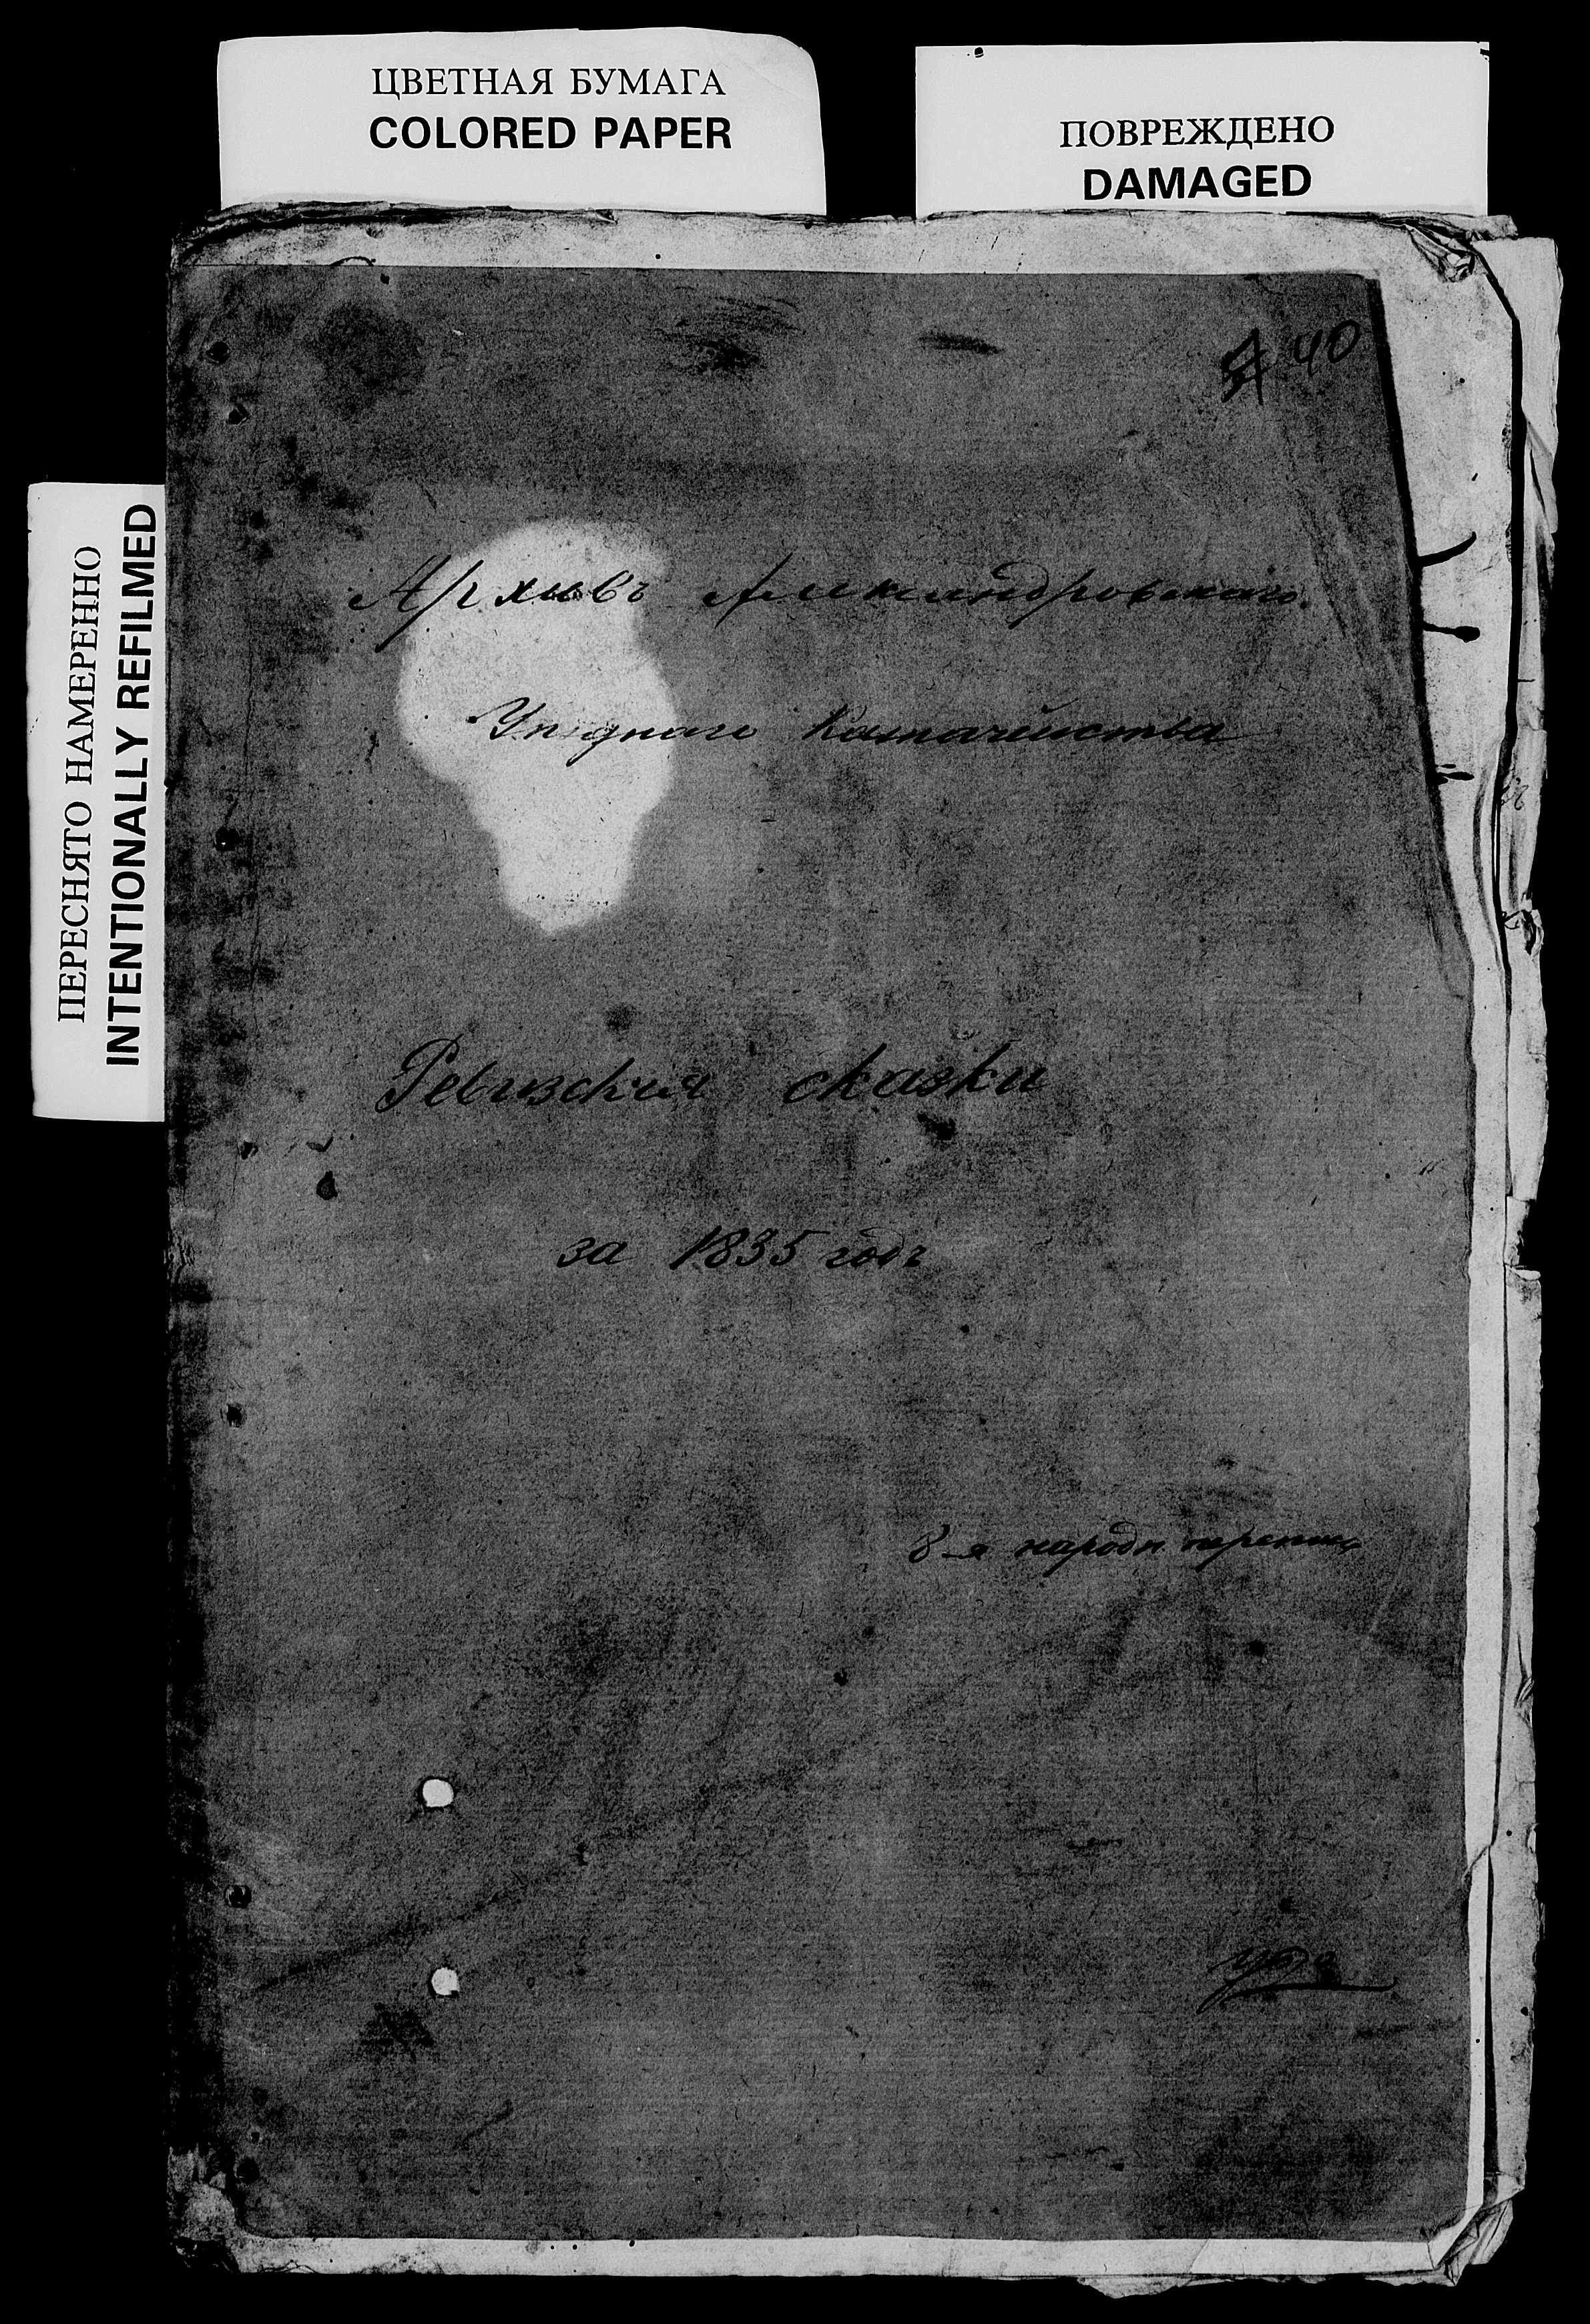 ЦВЕТНАЯ БУМАГА
COLORED PAPER
ПОВРЕЖДЕНО
DAMAGED
ПЕРЕСНЯТО НАМЕРЕННО
INTENTIONALLY REFILMED
40
Архивъ Александровскаго
Уѣзднаго Казначейства
Ревизскія сказки
за 1835 годъ
8-я народн перепись